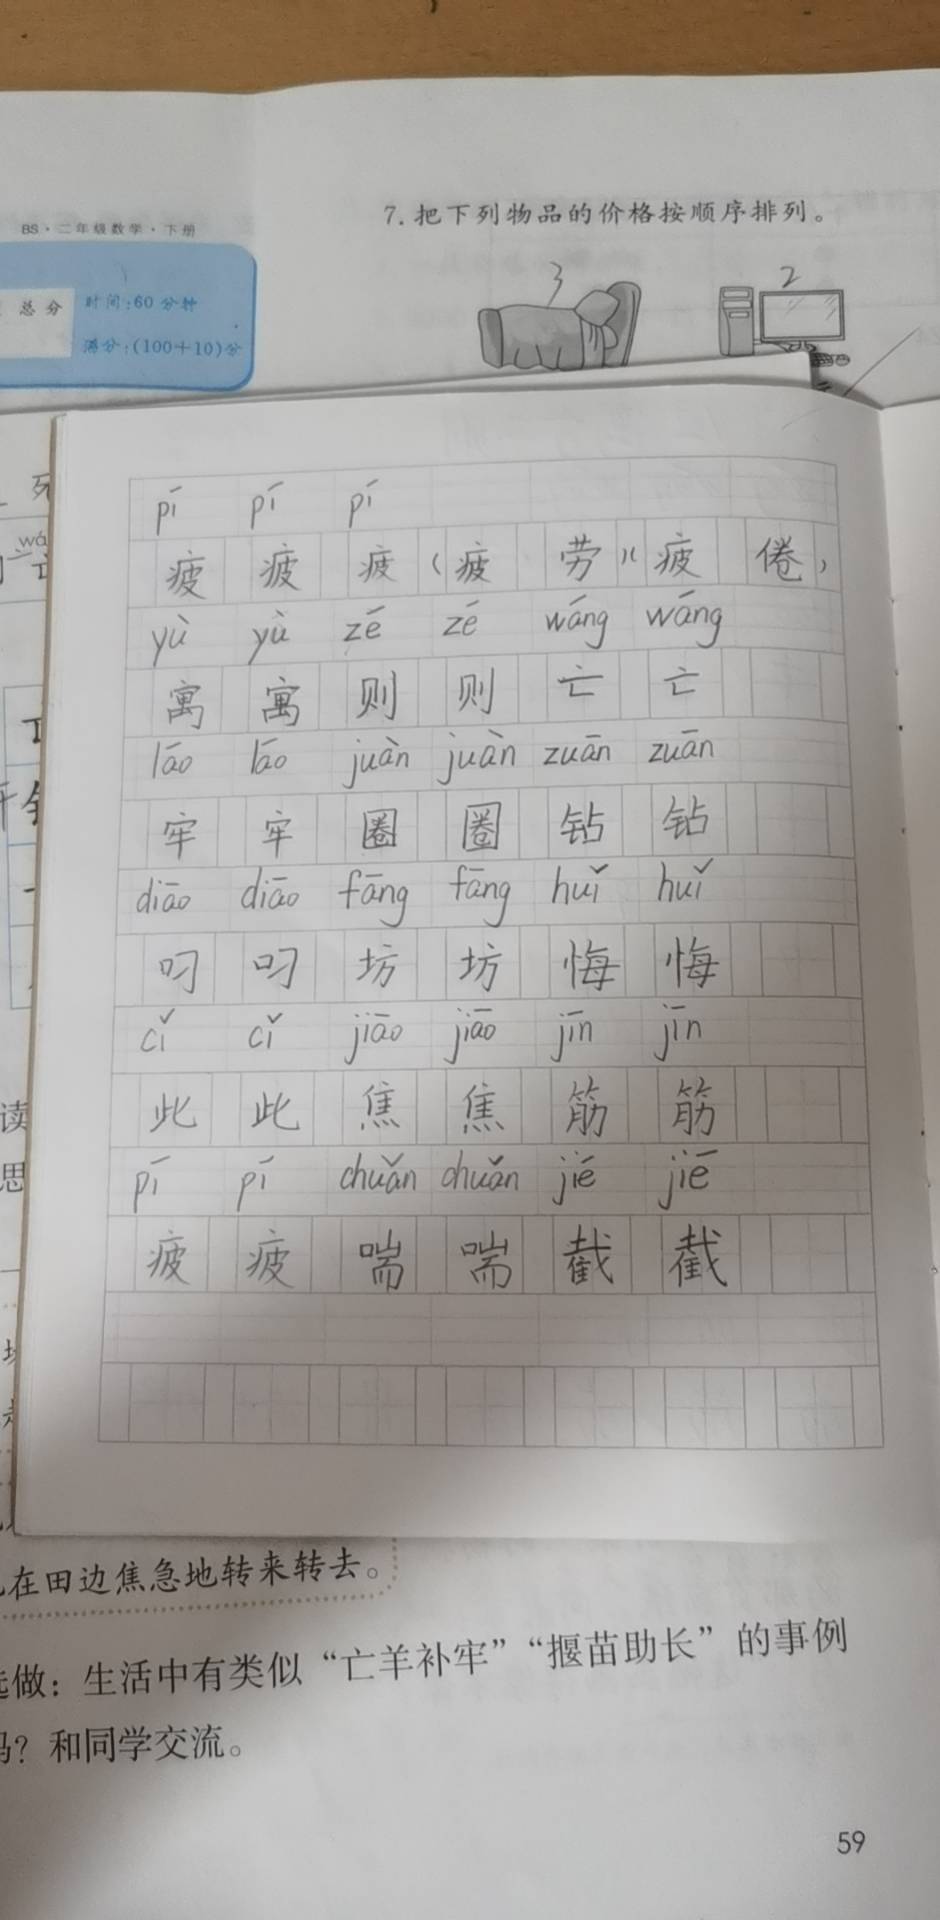 BS·二年级数学·下册
7.把下列物品的价格按顺序排列。
3 2
总分 时间:60分钟
满分:(100+10)分
死
wá
pí pí pí
疲 疲 疲(疲 劳)(疲 倦)
yù yù zé zé wáng wáng
寓 寓 则 则 亡 亡
láo láo juàn juàn zuān zuān
牢 牢 圈 圈 钻 钻
diāo diāo fāng fāng huǐ huǐ
叼 叼 坊 坊 悔 悔
cǐ cǐ jiāo jiāo jīn jīn
此 此 焦 焦 筋 筋
pí pí chuǎn chuǎn jié jié
疲 疲 喘 喘 截 截
读
思
在田边焦急地转来转去。
选做：生活中有类似“亡羊补牢”“揠苗助长”的事例
吗？和同学交流。
59